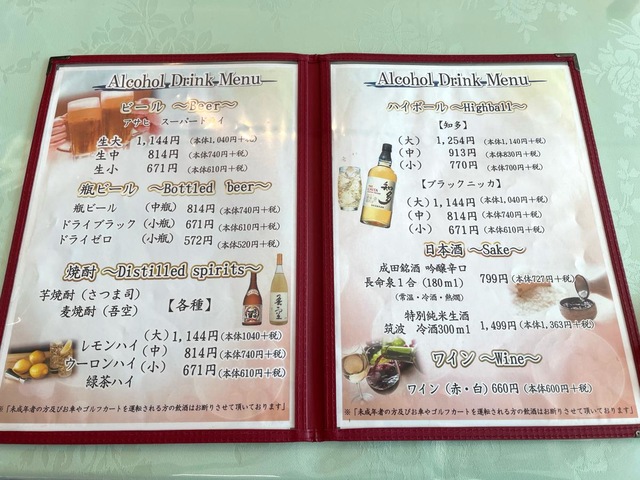 Alcohol Drink Menu
ビール ～Beer～
アサヒ スーパードライ
生大 1,144円 (本体1,040円+税)
生中 814円 (本体740円+税)
生小 671円 (本体610円+税)
瓶ビール ～Bottled beer～
瓶ビール (中瓶) 814円 (本体740円+税)
ドライブラック (小瓶) 671円 (本体610円+税)
ドライゼロ (小瓶) 572円 (本体520円+税)
焼酎 ～Distilled spirits～
芋焼酎 (さつま司)
麦焼酎 (吾空)
【各種】
レモンハイ (大) 1,144円 (本体1040+税)
ウーロンハイ (中) 814円 (本体740円+税)
緑茶ハイ (小) 671円 (本体610円+税)
※「未成年者の方及びお車やゴルフカートを運転される方の飲酒はお断りさせて頂いております」
Alcohol Drink Menu
ハイボール ～Highball～
【知多】
(大) 1,254円 (本体1,140円+税)
(中) 913円 (本体830円+税)
(小) 770円 (本体700円+税)
【ブラックニッカ】
(大) 1,144円 (本体1,040円+税)
(中) 814円 (本体740円+税)
(小) 671円 (本体610円+税)
日本酒 ～Sake～
成田銘酒 吟醸辛口
長命泉1合 (180ml) 799円 (本体727円+税)
(常温・冷酒・熱燗)
特別純米生酒
筑波 冷酒300ml 1,499円 (本体1,363円+税)
ワイン ～Wine～
ワイン (赤・白) 660円 (本体600円+税)
※「未成年者の方及びお車やゴルフカートを運転される方の飲酒はお断りさせて頂いております」